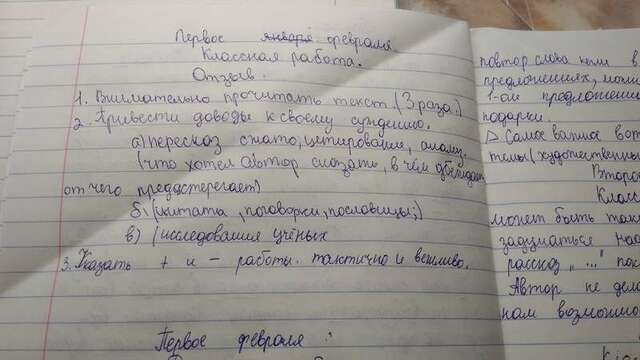 Первое января февраля.
Классная работа.
Отзыв.
1. Внимательно прочитать текст (3 раза.)
2. Привести доводы к своему суждению.
а) пересказ сжато, цитирование, анализ.
(что хотел автор сказать, в чём убеждает
от чего предостерегает)
б) (цитата, поговорки, пословицы;)
в) (исследования учёных
3. Указать + и - работы. тактично и вежливо.
Первое февраля
повтор слова или в
предложениях,
1-ом предложени
подарки.
Самое важное вот
темы (художественн
Второ
Класс
может быть так
задуматься над
рассказ „..."
Автор не дел
нам возможно